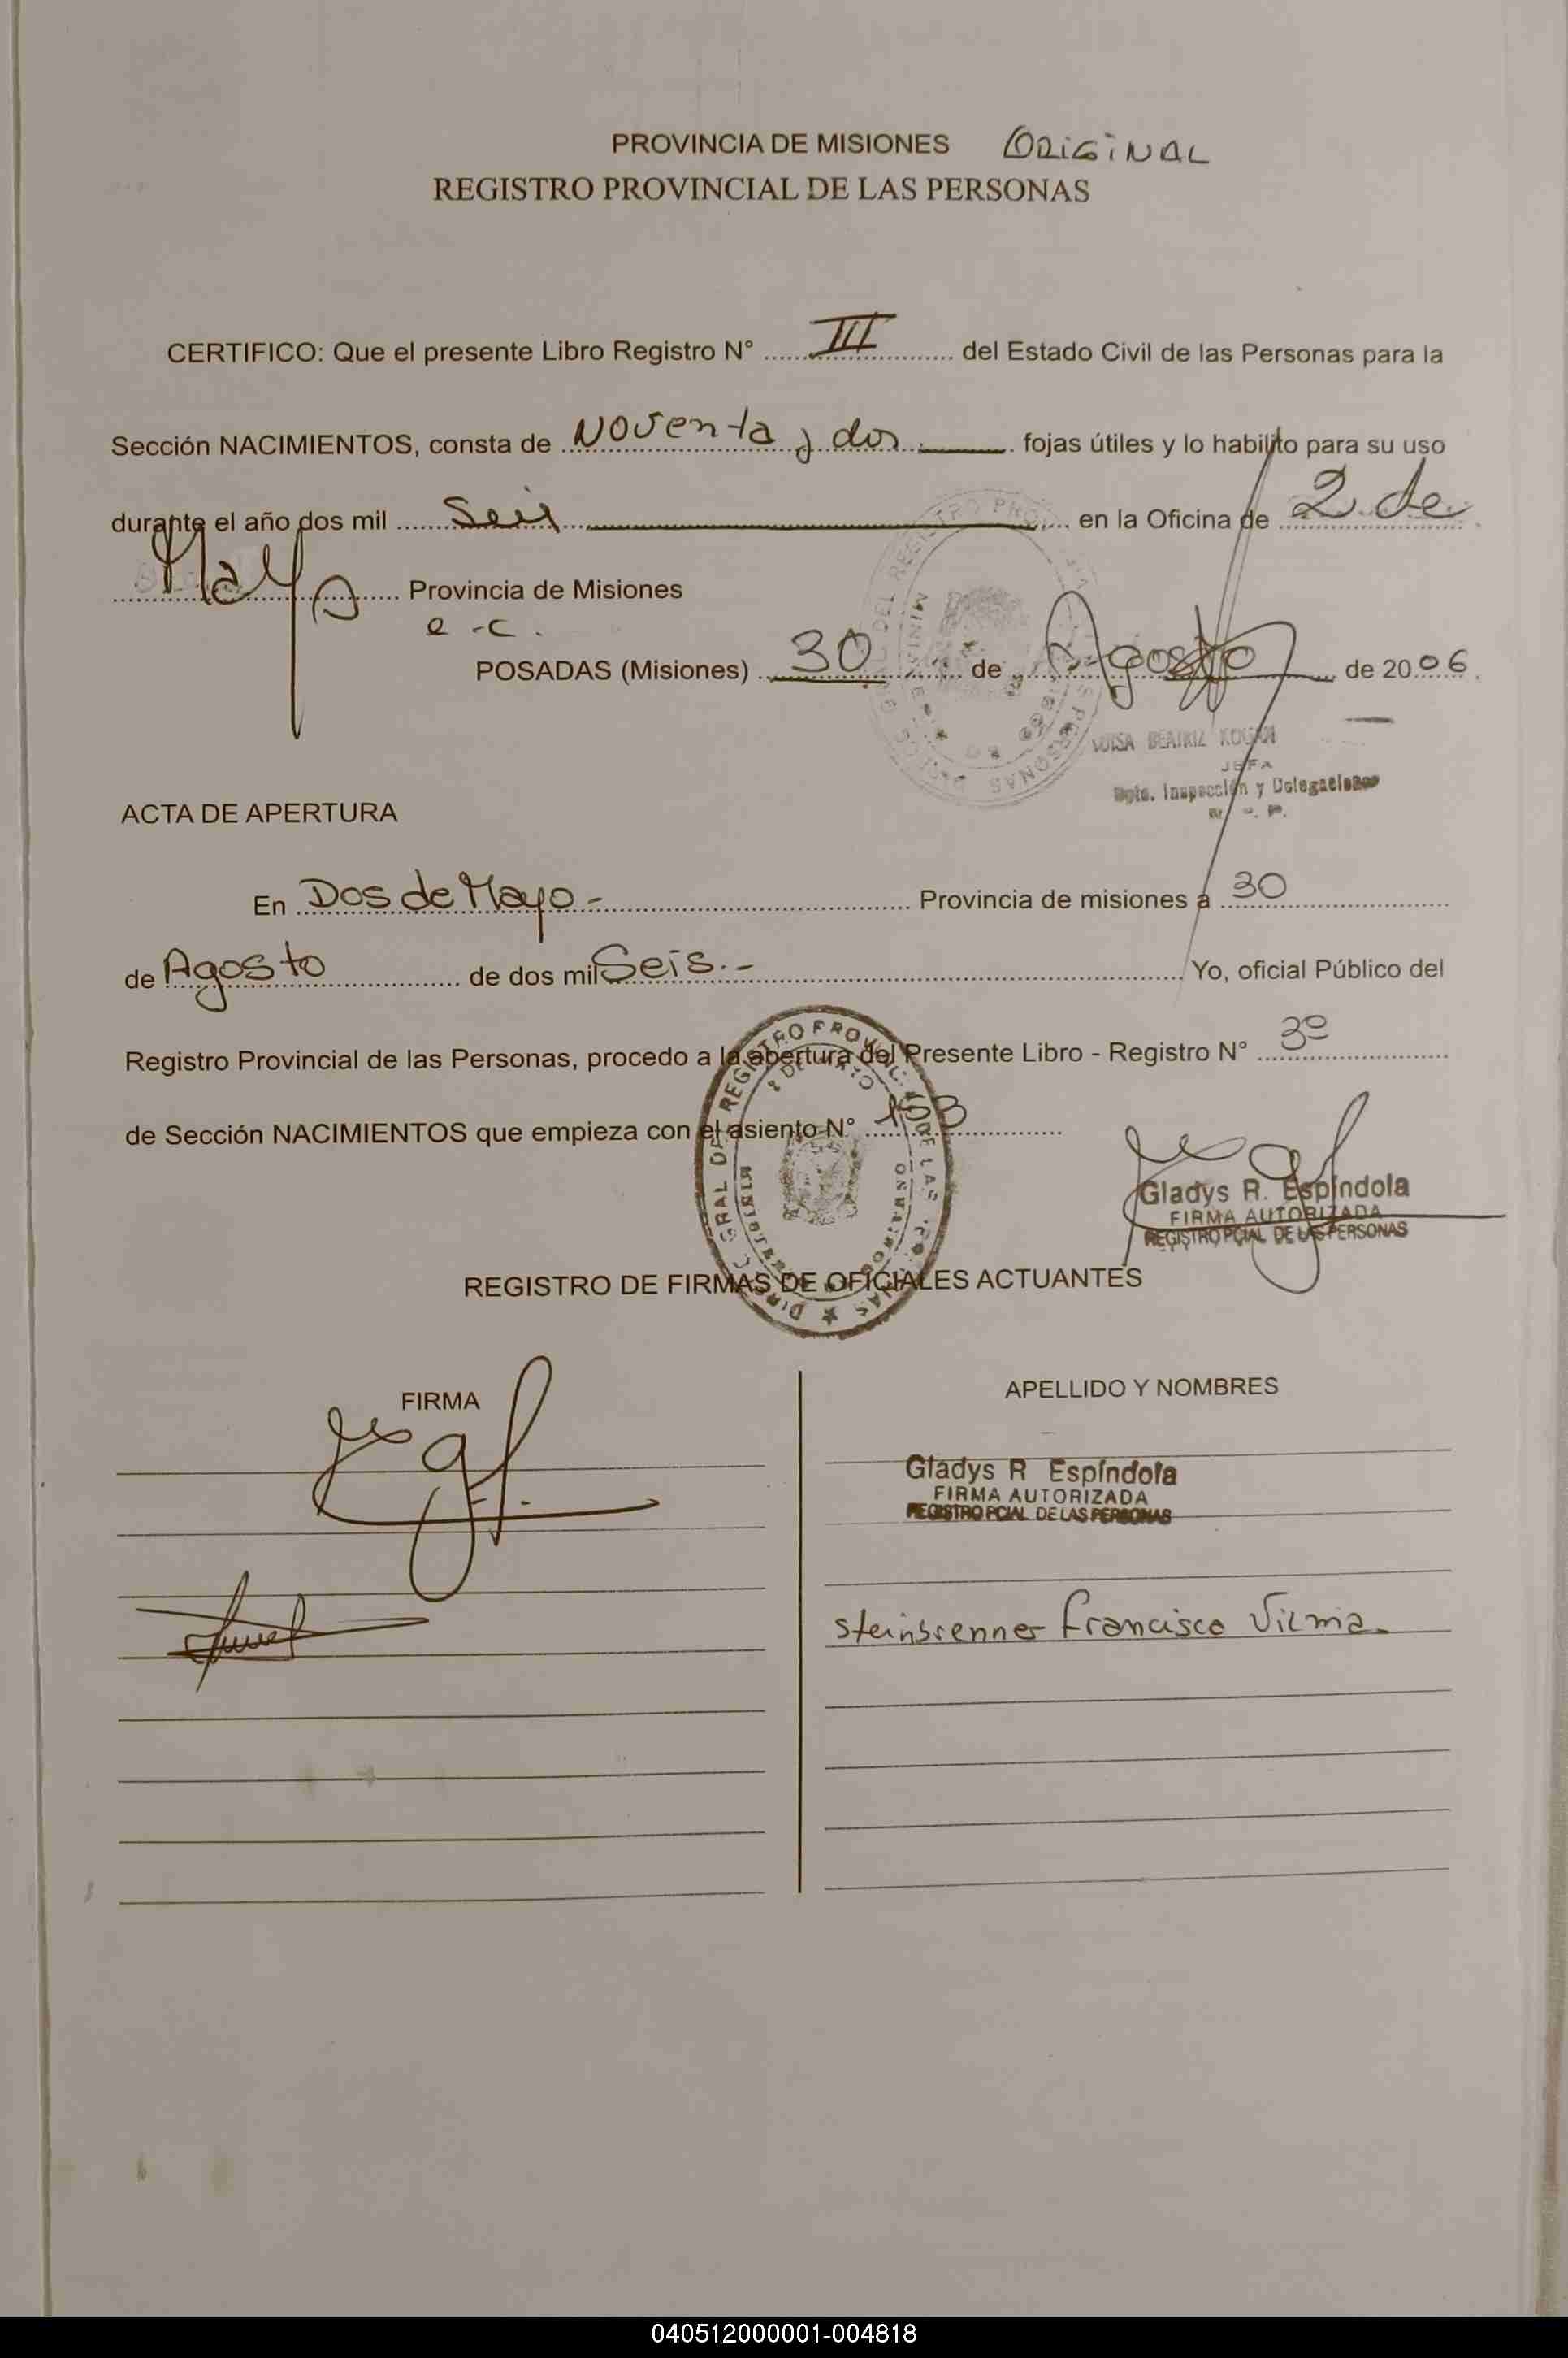 PROVINCIA DE MISIONES ORIGINAL
REGISTRO PROVINCIAL DE LAS PERSONAS
CERTIFICO: Que el presente Libro Registro N° III del Estado Civil de las Personas para la
Sección NACIMIENTOS, consta de Noventa y dos fojas útiles y lo habilito para su uso
durante el año dos mil Seis en la Oficina de 2 de
Mayo Provincia de Misiones
e.c.
POSADAS (Misiones) 30 de Agosto de 2006
LUISA BEATRIZ KOGAN
JEFA
Dpto. Inspección y Delegaciones
ACTA DE APERTURA
En Dos de Mayo.- Provincia de misiones a 30
de Agosto de dos mil Seis.- Yo, oficial Público del
Registro Provincial de las Personas, procedo a la abertura del Presente Libro - Registro N° 3º
de Sección NACIMIENTOS que empieza con el asiento N°
Gladys R. Espíndola
FIRMA AUTORIZADA
REGISTRO PCIAL DE LAS PERSONAS
REGISTRO DE FIRMAS DE OFICIALES ACTUANTES
FIRMA APELLIDO Y NOMBRES
Gladys R Espíndola
FIRMA AUTORIZADA
REGISTRO PCIAL DE LAS PERSONAS
Steinbrenner Francisco Vilma.
040512000001-004818